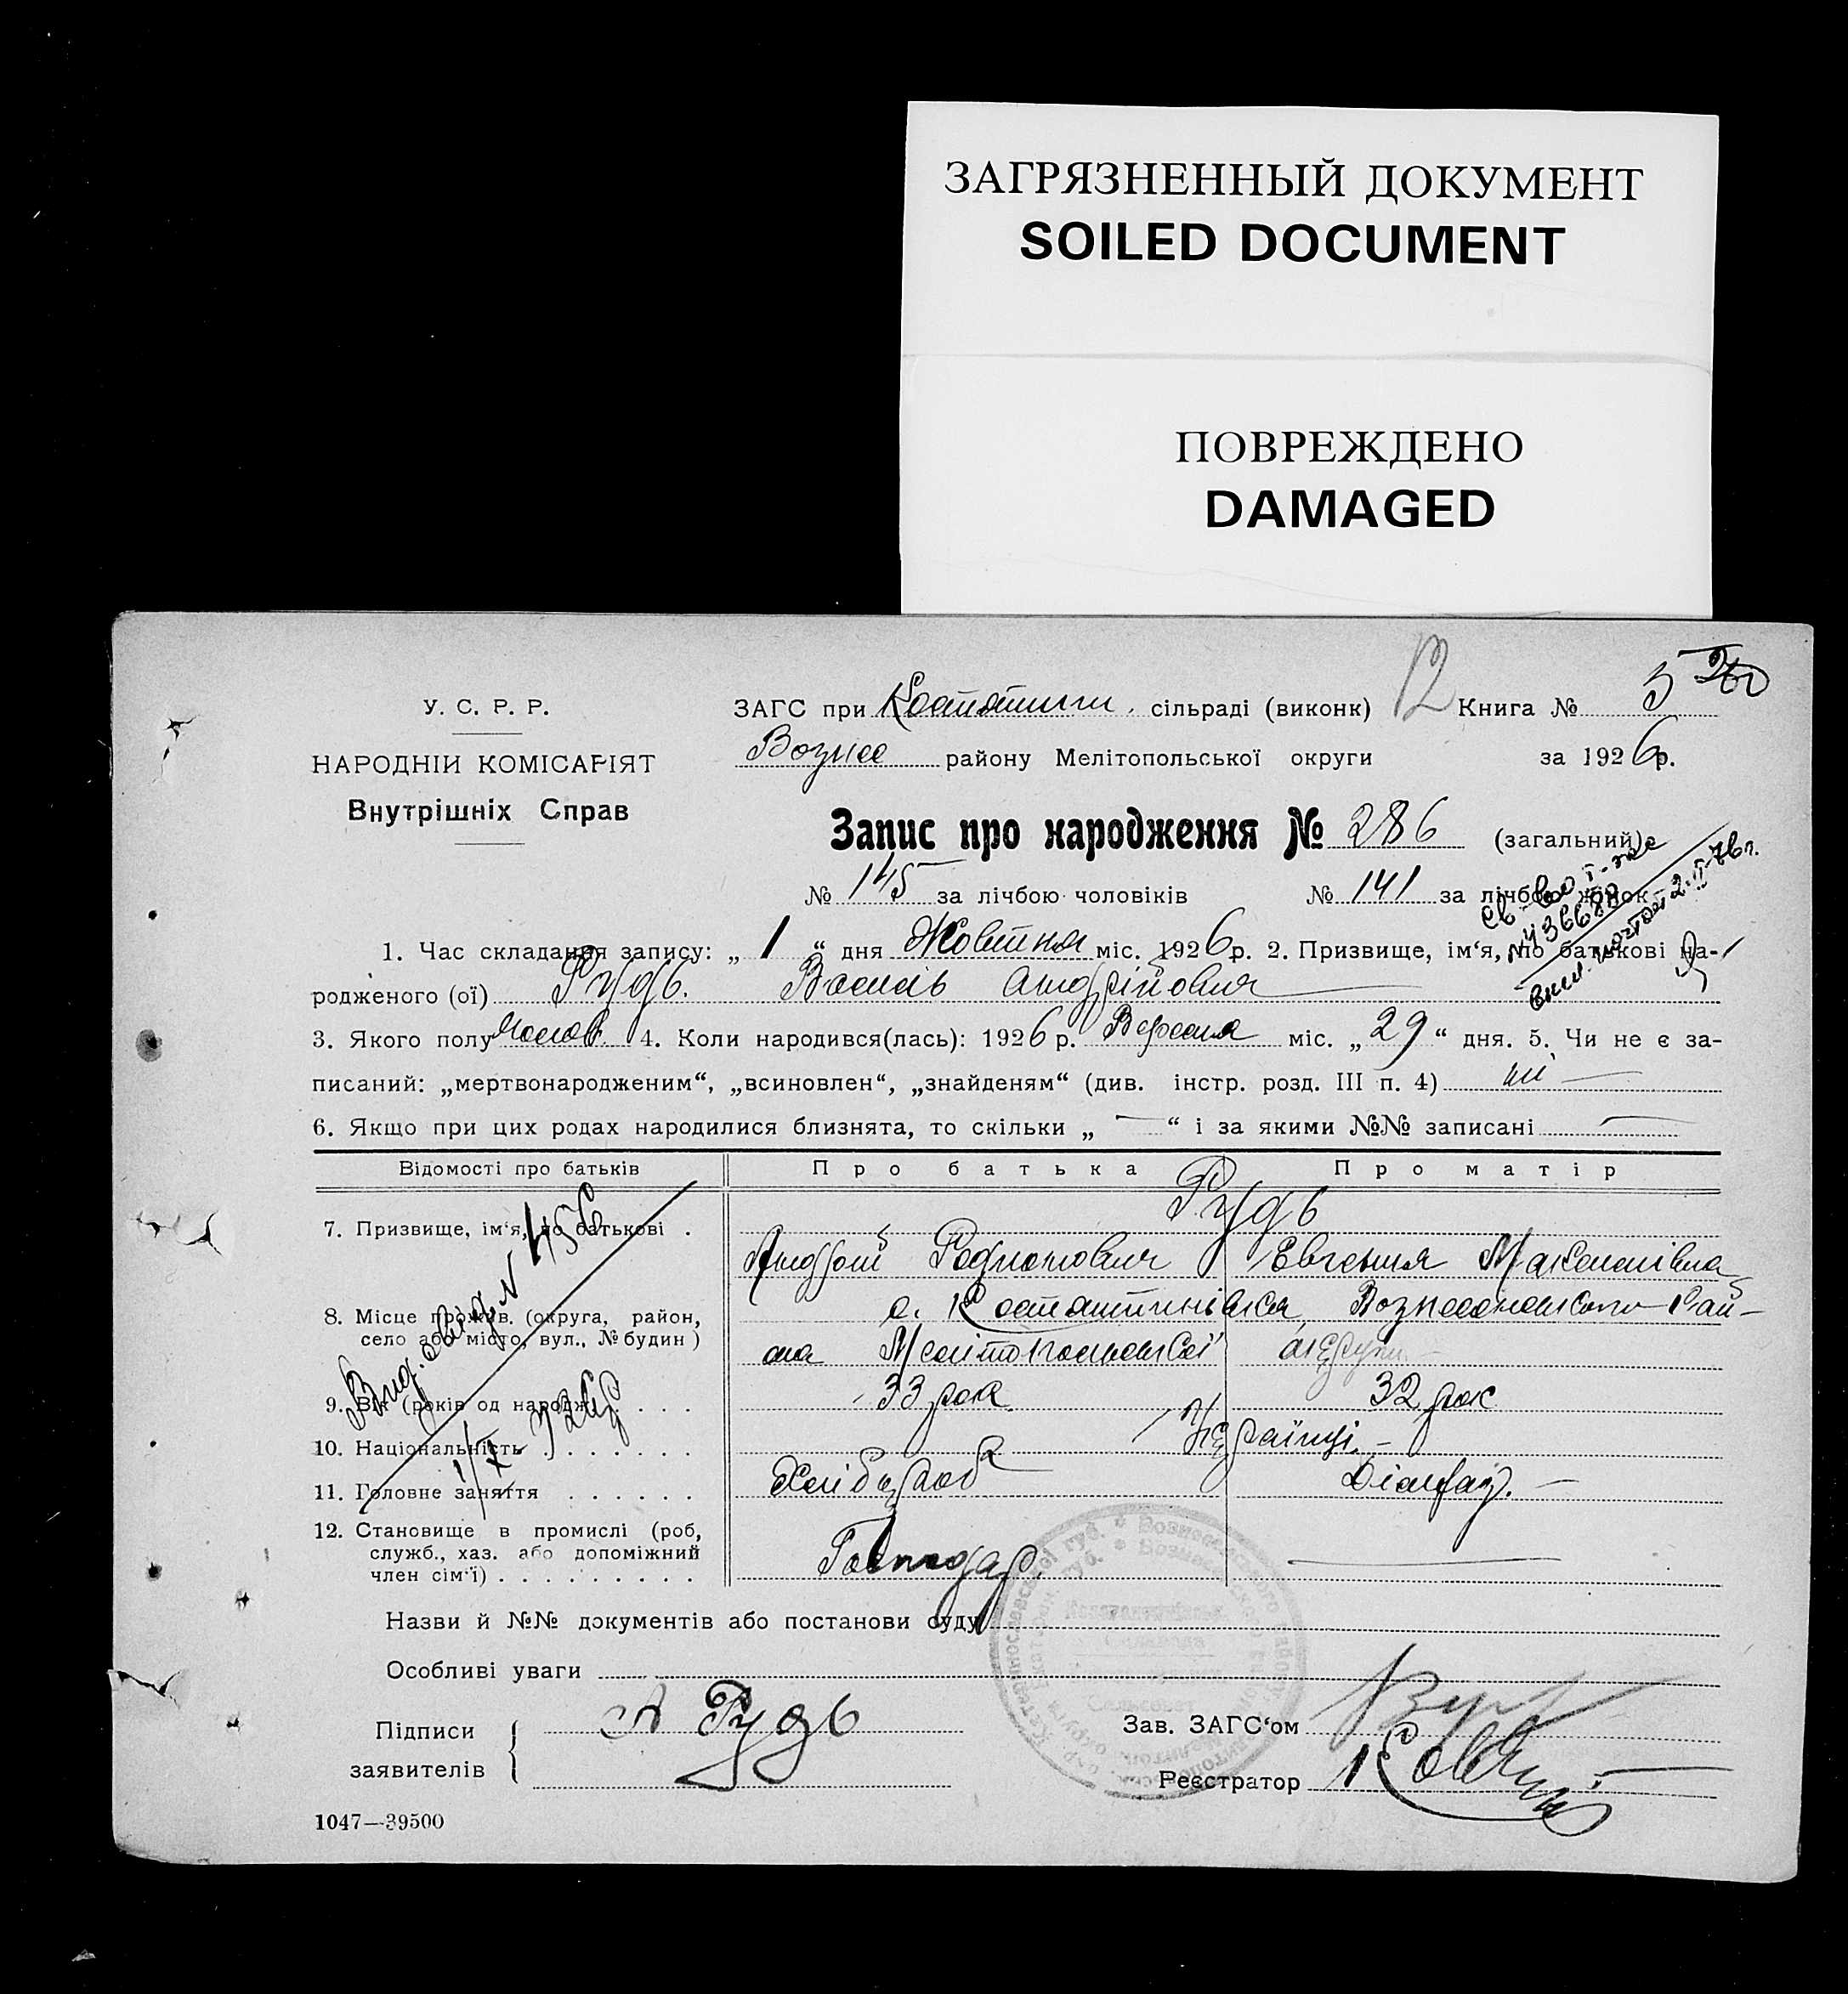 ЗАГРЯЗНЕННЫЙ ДОКУМЕНТ
SOILED DOCUMENT
ПОВРЕЖДЕНО
DAMAGED
У. С. Р. Р.
НАРОДНІИ КОМІСАРІЯТ
Внутрішніх Справ
12
ЗАГС при Костянтин. сільраді (виконк) Книга № 5
Вознес району Мелітопольської округи за 1926р.
Запис про народження № 286 (загальний)
№ 145 за лічбою чоловіків № 141 за лічбою жінок
1. Час складання запису: „ 1 “ дня Жовтня міс. 1926р. 2. Призвище, ім‘я, по батькові на-
родженого (ої) Рудь. Василь Андрійович
3. Якого полу чолов. 4. Коли народився(лась): 1926 р. Вересня міс. „ 29 “ дня. 5. Чи не є за-
писаний: „мертвонародженим“, „всиновлен“, „знайденям“ (див. інстр. розд. III п. 4) ні —
6. Якщо при цих родах народилися близнята, то скільки „ — “ і за якими №№ записані —
Відомості про батьків Про батька Про матір
7. Призвище, ім‘я, по батькові . Рудь
Андрій Родионович Евгения Максимівна
8. Місце прожив. (округа, район,
село або місто, вул., № будин)
с. Костянтинівка, Вознесенського Рай-
она Мелітопольської округи
9. Вік (років од народж.) . . . . 33 рок 32 рок
10. Національність . . . . . . . Українці. —
11. Головне заняття . . . . . . Хлібороб Діловод. —
12. Становище в промислі (роб,
служб., хаз. або допоміжний
член сім‘ї) . . . . . . . . . Господар.
Вид. свид. № 456
1/X 926р
Назви й №№ документів або постанови суду
Особливі уваги
Підписи
заявителів
А Рудь
Зав. ЗАГС‘ом
Реєстратор
1047—39500